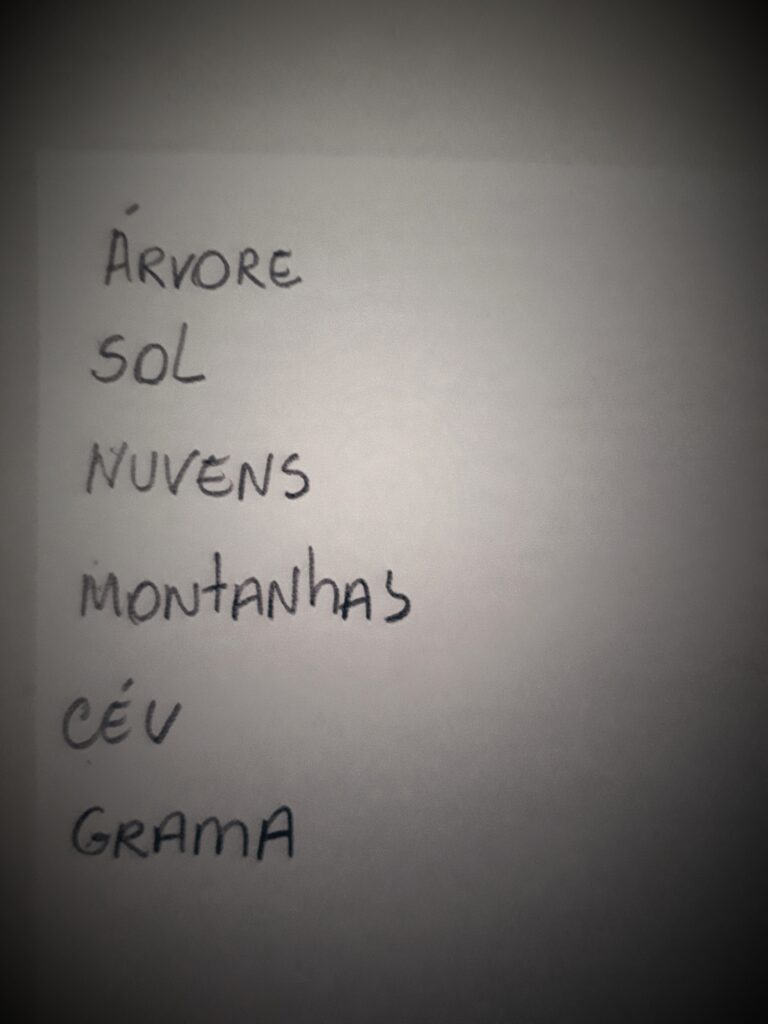 ÁRVORE
SOL
NUVENS
MONTANHAS
CÉU
GRAMA